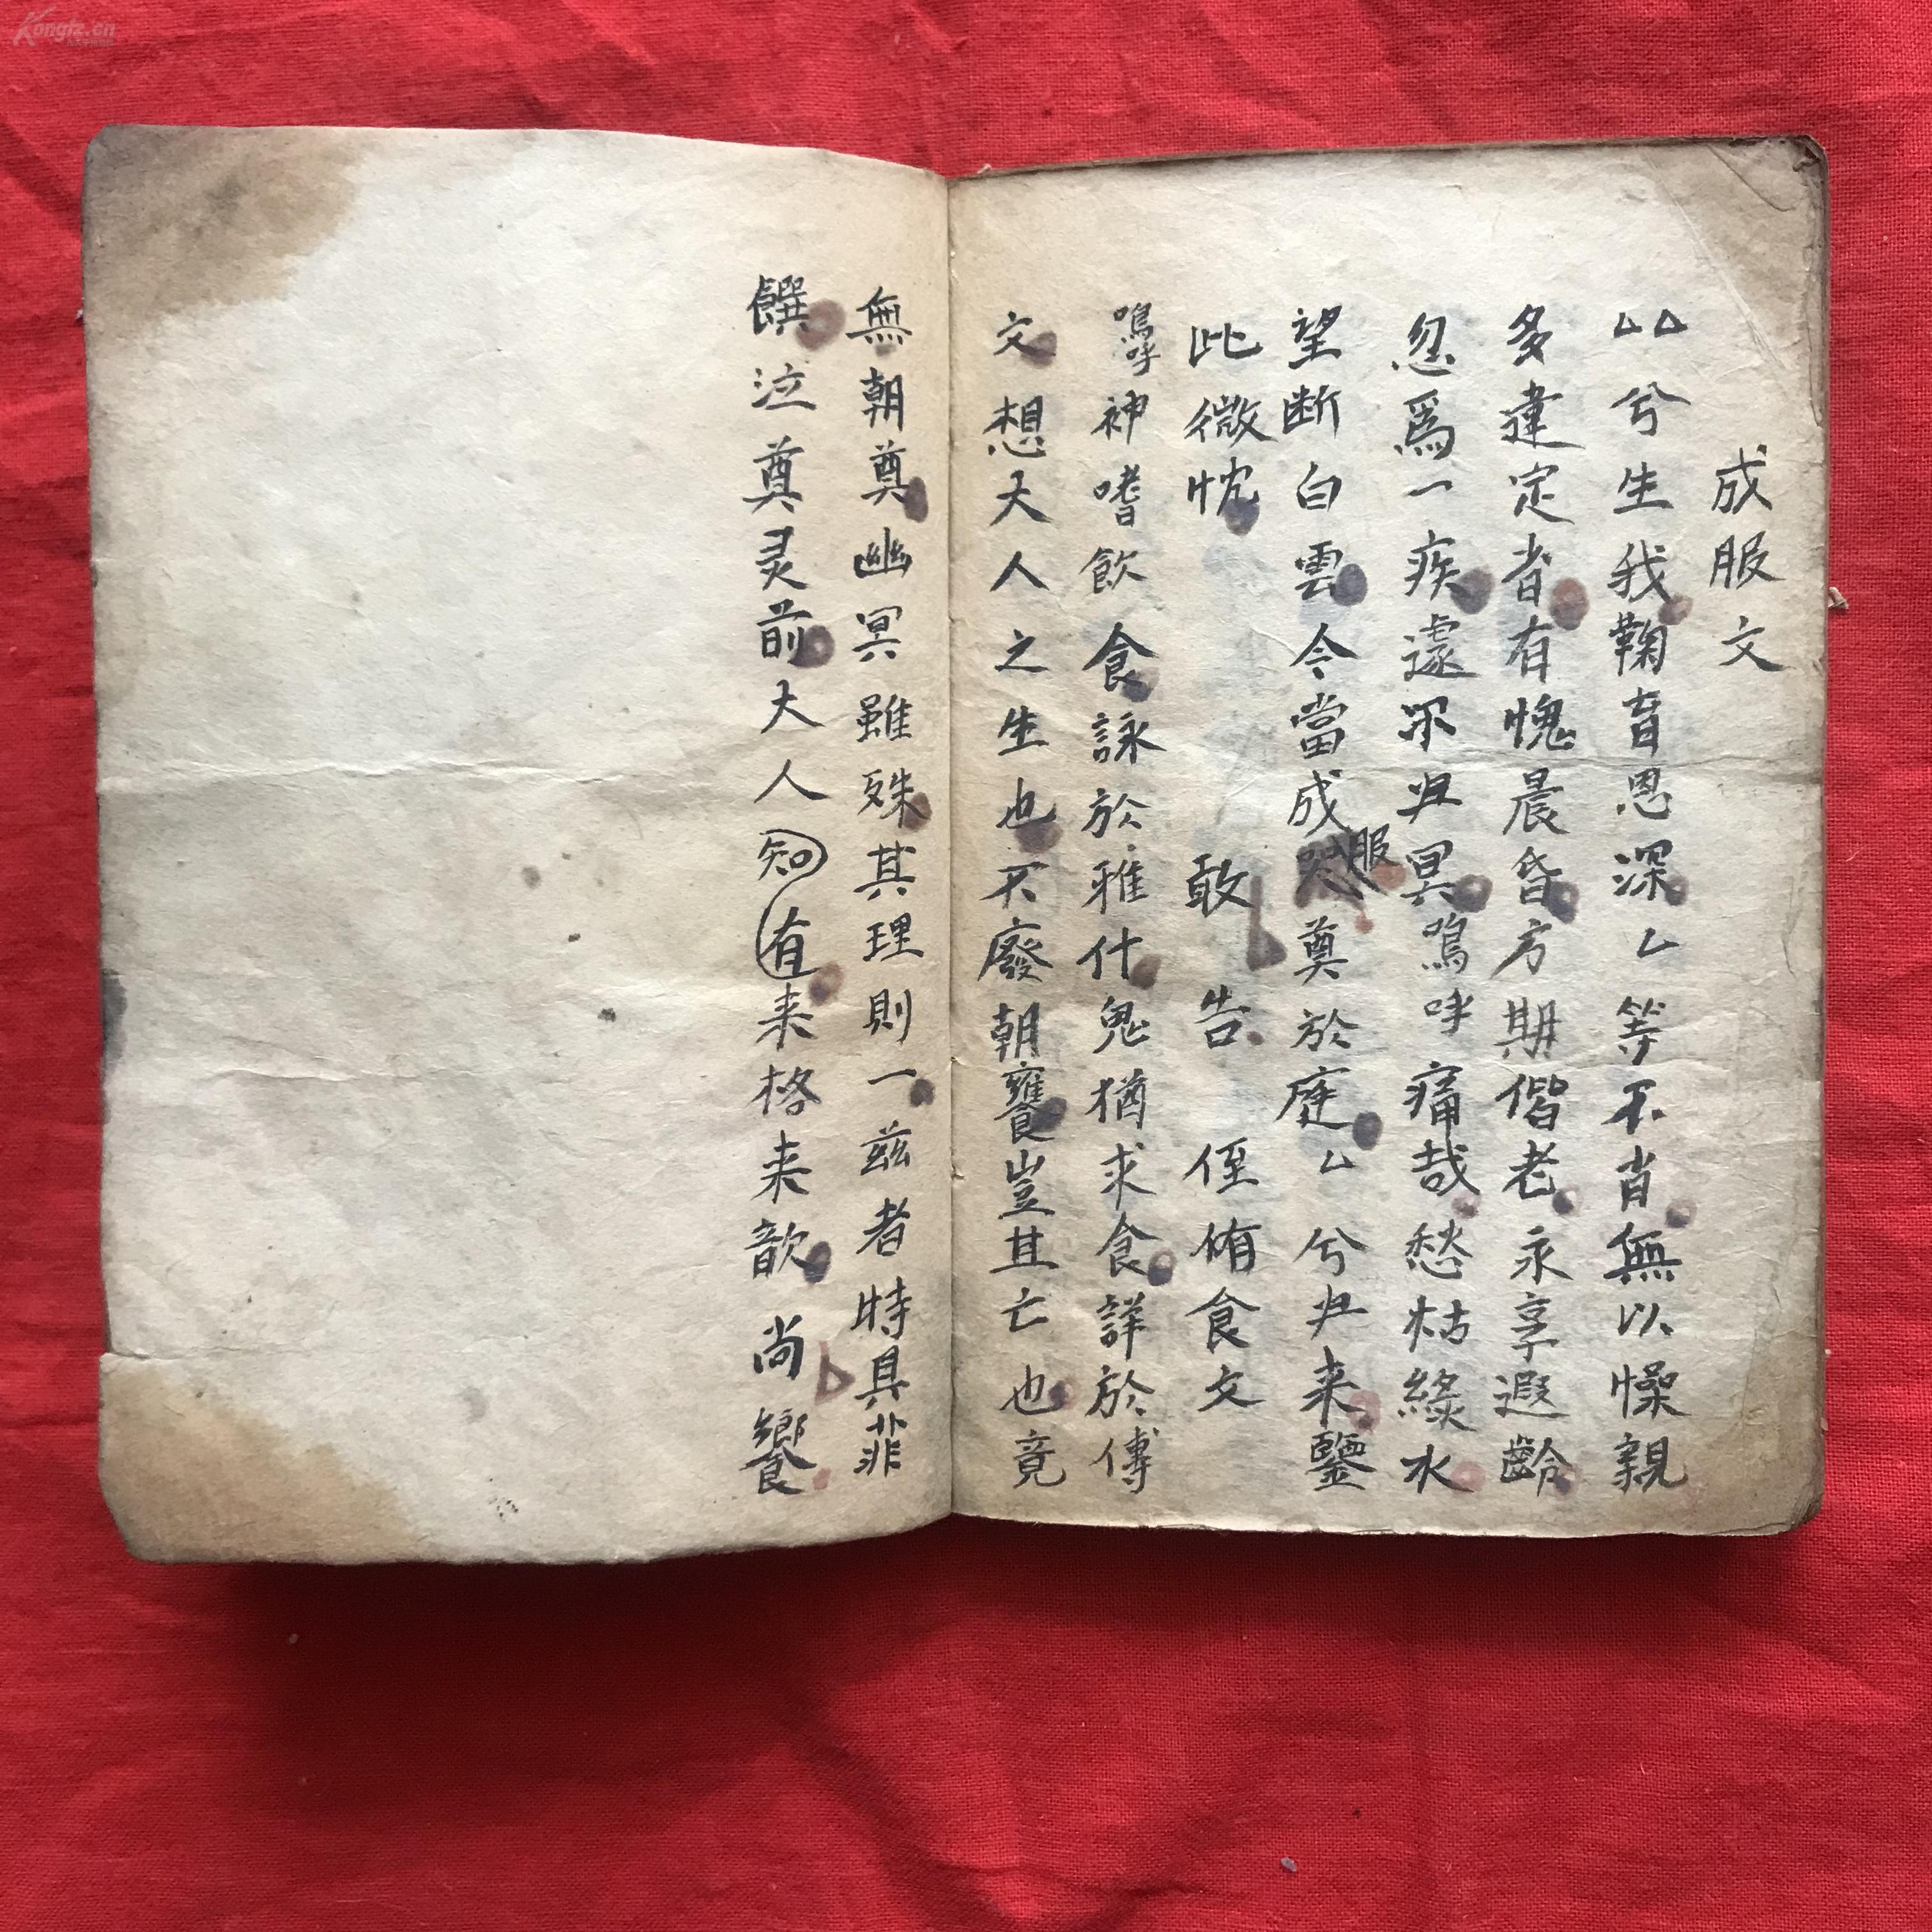 成服文
厶厶兮生我鞠育恩深厶等不肖無以懆親
多違定省有愧晨昏方期偕老永享遐齡
忽爲一疾遽尔归冥嗚呼痛哉愁枯綠水
望断白雲今當成服奠於庭厶兮归来鑒
此微忱 敢告 侄侑食文
嗚呼神嗜飲食詠於雅什鬼猶求食詳於傳
文想大人之生也不廢朝饔豈其亡也竟
無朝奠幽冥雖殊其理則一兹者時具菲
饌泣奠灵前大人知有来格来歆尚饗
Kongfz.cn